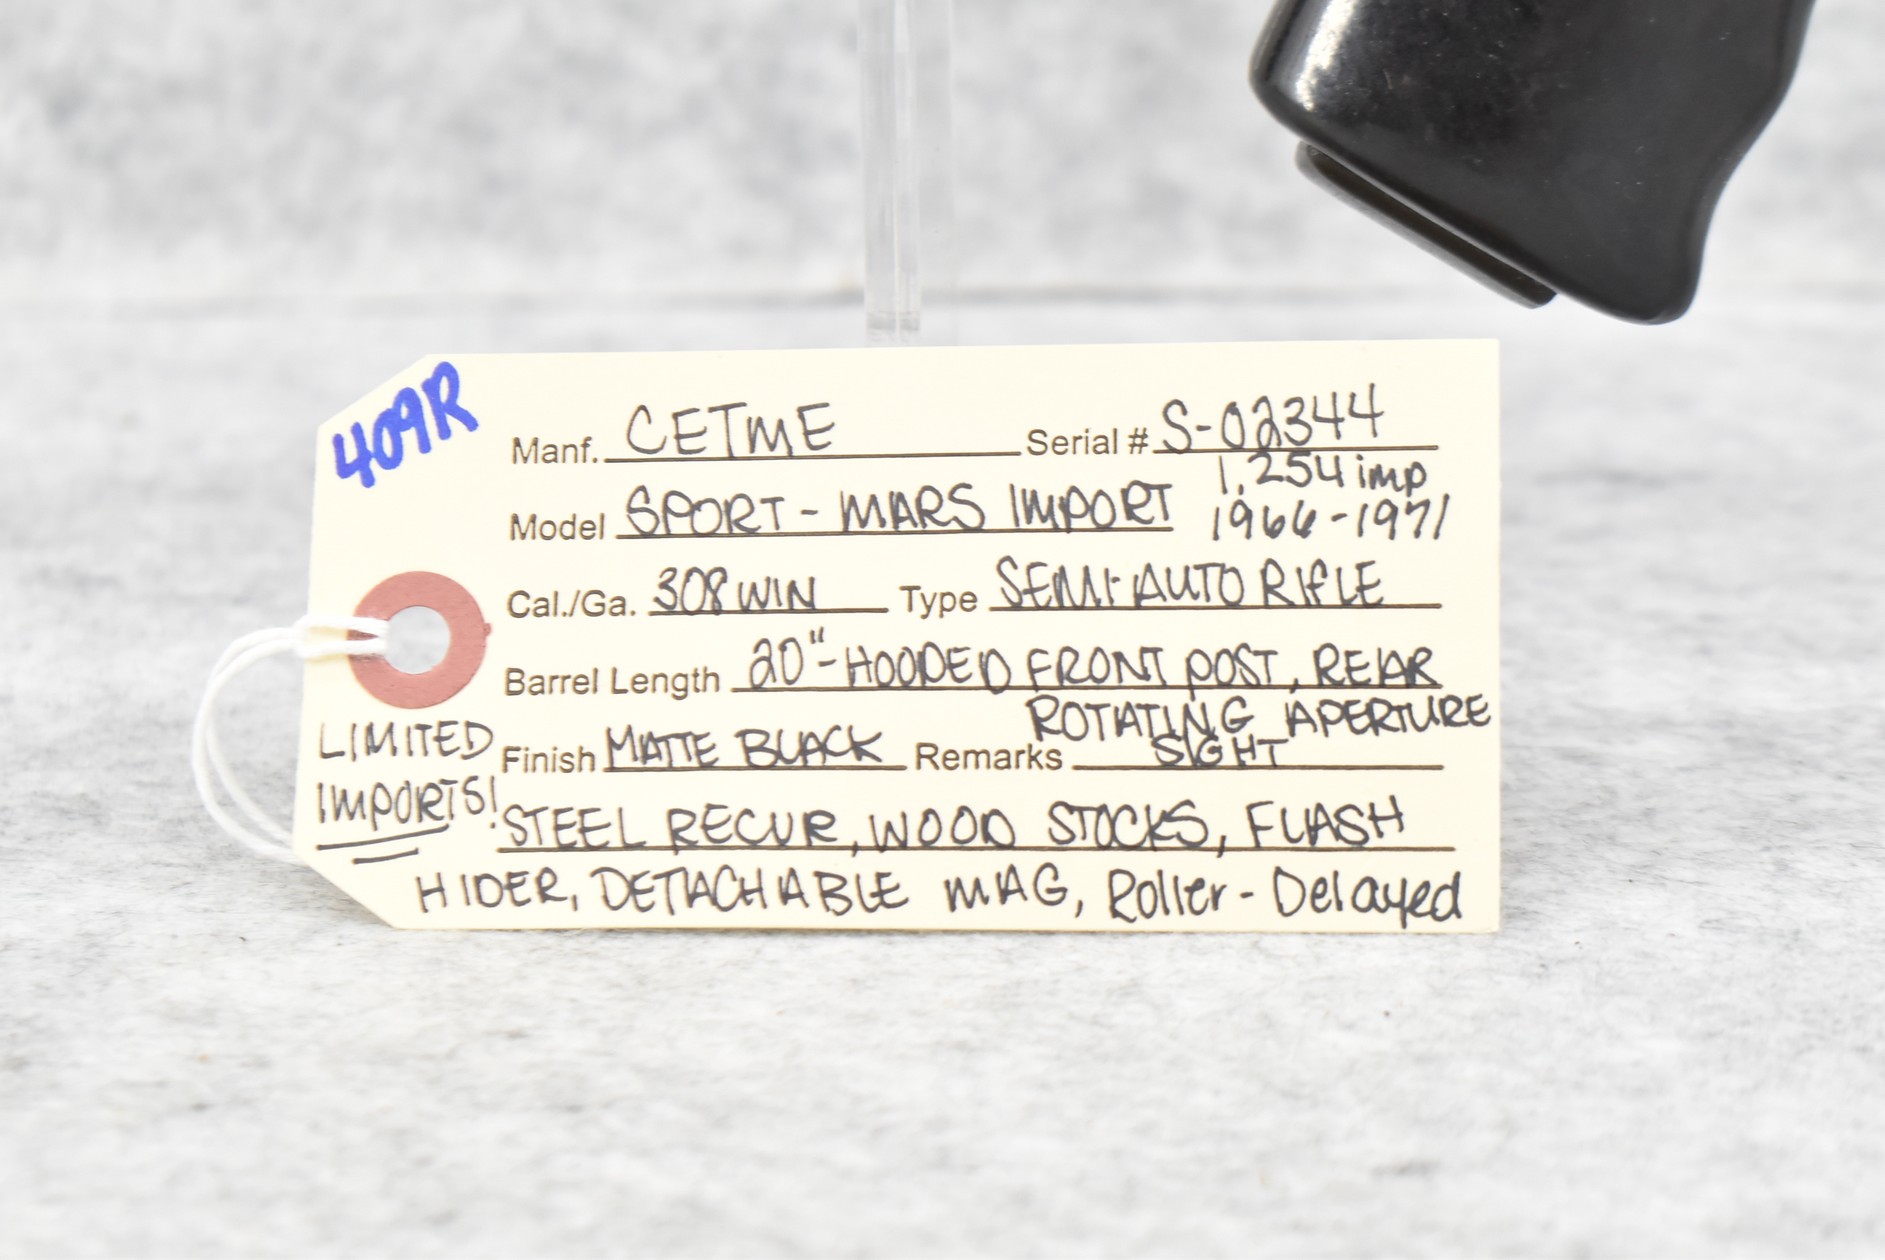 409R
Manf. CETME Serial # S-02344
1,254 imp
Model SPORT - MARS IMPORT 1966-1971
Cal./Ga. 308 WIN Type SEMI-AUTO RIFLE
Barrel Length 20"-HOODED FRONT POST, REAR
ROTATING APERTURE
Finish MATTE BLACK Remarks SIGHT
LIMITED
IMPORTS!
STEEL RECUR, WOOD STOCKS, FLASH
HIDER, DETACHABLE MAG, Roller-Delayed